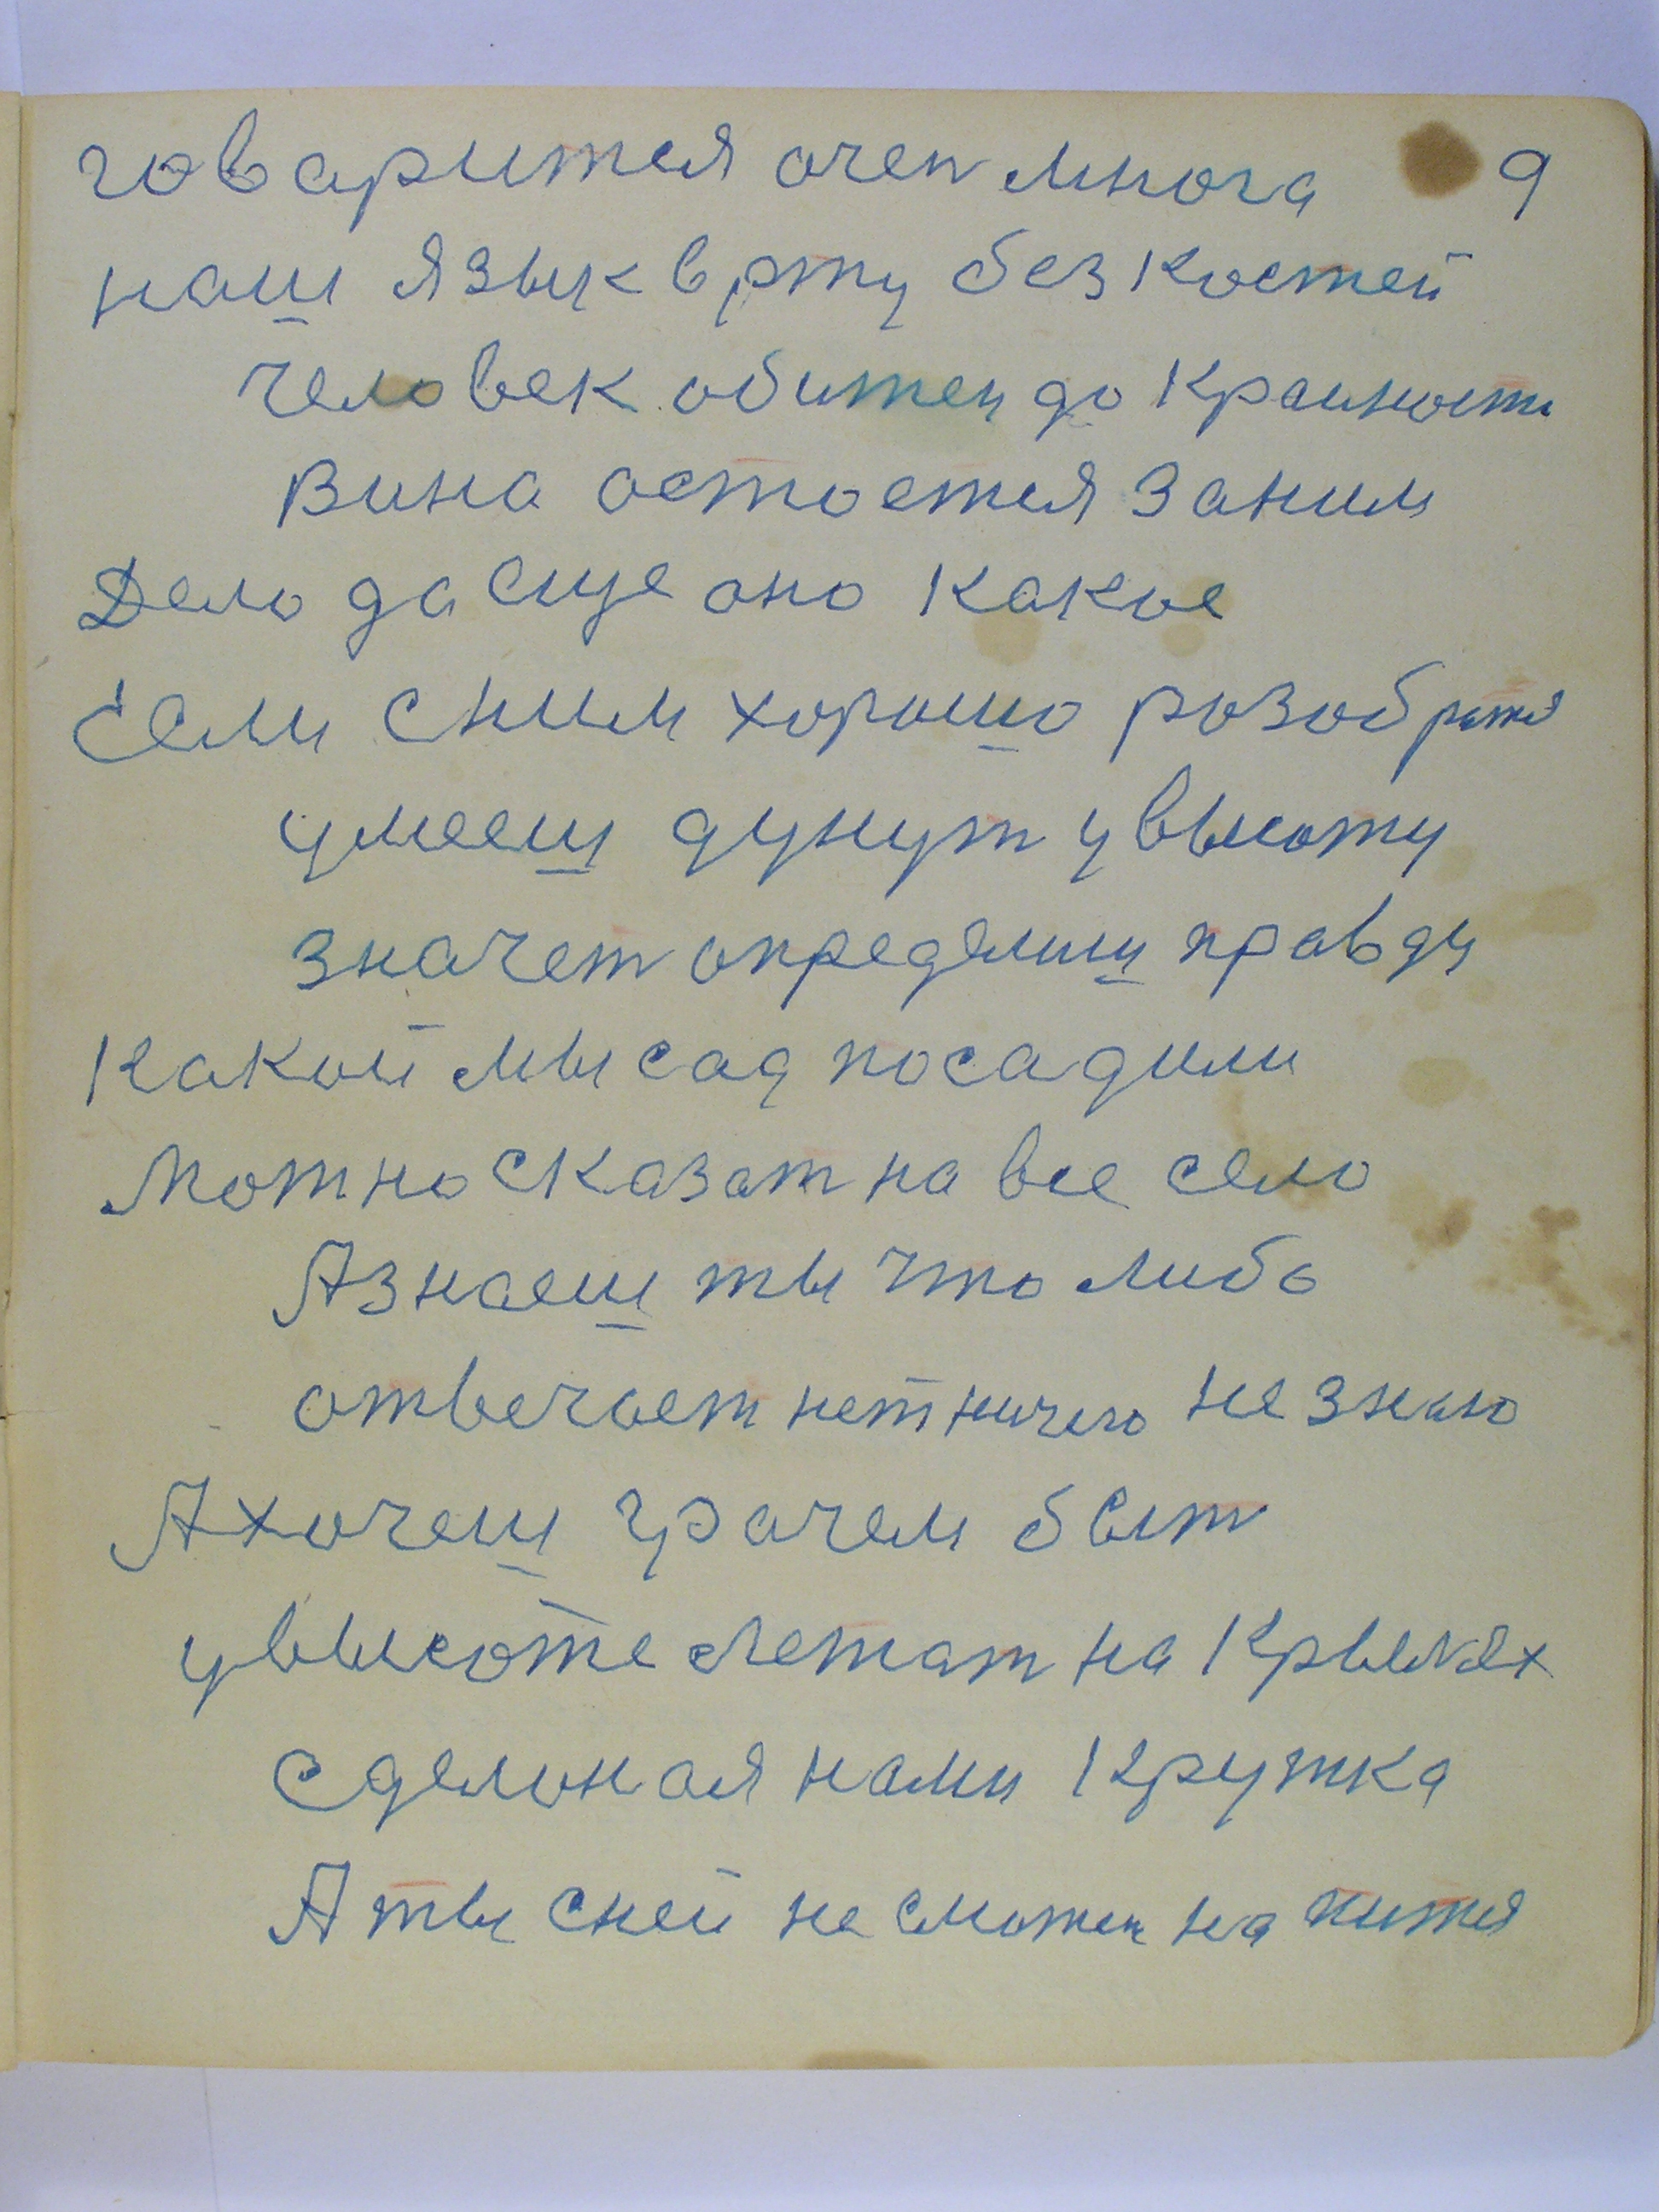 говарится очен многа 9
наш язык врту без костей
человек обижен до краиности
вина остоется за ним
Дело да еще оно какое
Если с ним хорошо розобратся
умееш дунут у высоту
значет определиш правду
какой мы сад посадили
Можно сказат на все село
А знаеш ты что либо
отвечает нет ничего не знаю
А хочеш грачем быт
у высоте летат на крылях
сделоная нами кружка
А ты с ней не сможеш на питися